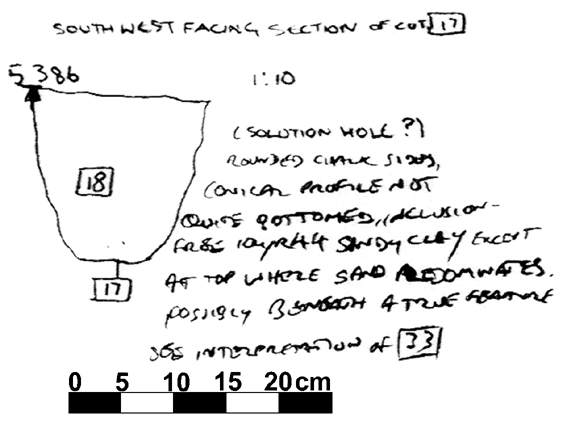 SOUTHWEST FACING SECTION OF CUT 17
5.386
1:10
(SOLUTION HOLE?)
ROUNDED CHALK SIDES,
CONICAL PROFILE NOT
18
QUITE BOTTOMED, INCLUSION-
FREE 10YR44 SANDY CLAY EXCEPT
AT TOP WHERE SAND PREDOMINATES.
17
POSSIBLY BENEATH A TRUE FEATURE
SEE INTERPRETATION OF 33
0 5 10 15 20 cm